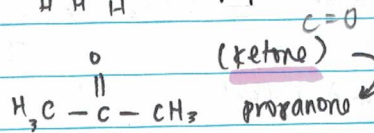 H H H
C=O
O (ketone)
||
H₃C – C – CH₃ propanone